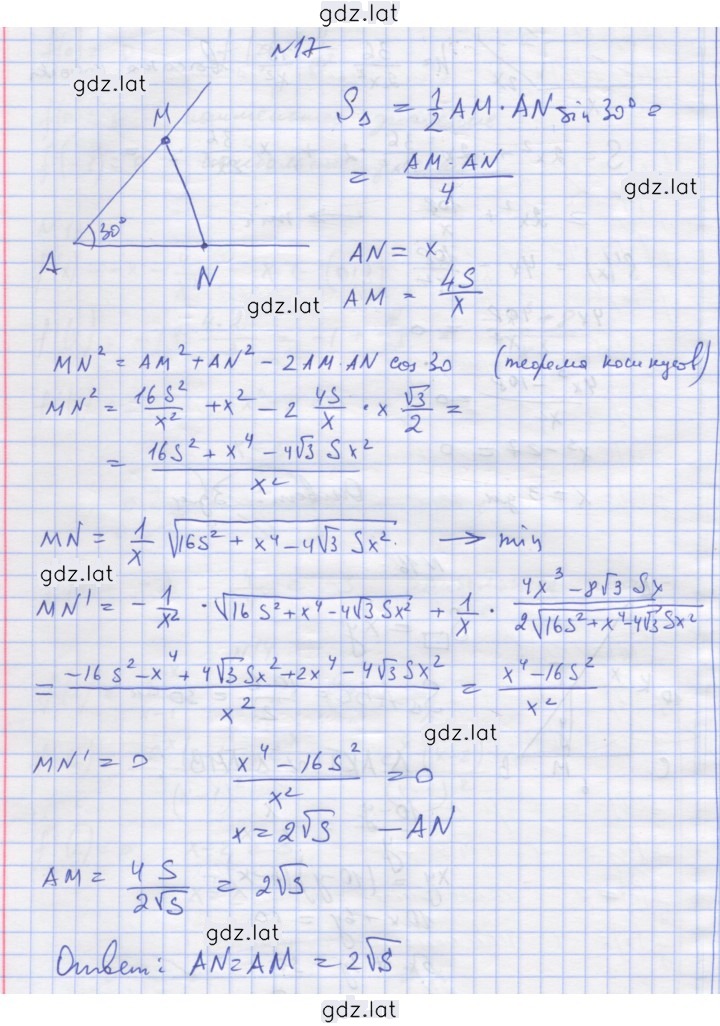 gdz.lat
№17
gdz.lat
M
30°
A
N
S_Δ = 1/2 AM · AN sin 30° =
= AM · AN / 4
gdz.lat
AN = x
AM = 4S / x
gdz.lat
MN² = AM² + AN² - 2AM·AN cos 30 (теорема косинусов)
MN² = 16S²/x² + x² - 2 4S/x · x √3/2 =
= (16S² + x⁴ - 4√3 Sx²) / x²
MN = 1/x √(16S² + x⁴ - 4√3 Sx²) → min
gdz.lat
MN' = - 1/x² · √(16S² + x⁴ - 4√3 Sx²) + 1/x · (4x³ - 8√3 Sx) / (2√(16S² + x⁴ - 4√3 Sx²))
= (-16S² - x⁴ + 4√3 Sx² + 2x⁴ - 4√3 Sx²) / x² = (x⁴ - 16S²) / x²
gdz.lat
MN' = 0 (x⁴ - 16S²) / x² = 0
x = 2√S - AN
AM = 4S / 2√S = 2√S
gdz.lat
Ответ: AN = AM = 2√S
gdz.lat